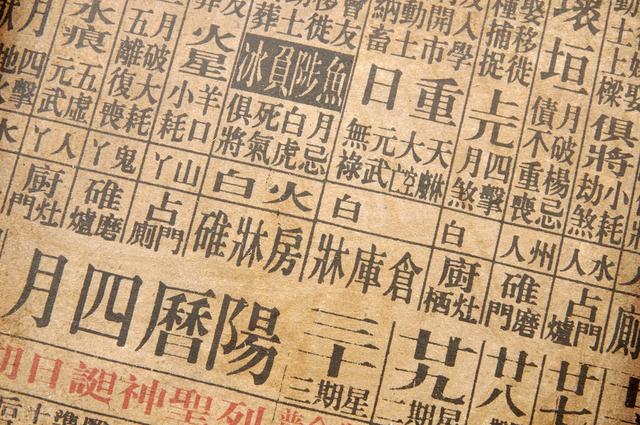 上樑
俱將
小耗
劫煞
水人
占門
爐
廿七
壞垣
月破楊忌
債不重喪
州人
碓磨
門
廿八
娶移徙
種捕捉
上元
四擊
月煞
白
廚灶
栖
廿九
星期二
入學
開市
動土
納畜
重日
元武
無祿
白
倉庫牀
三十
星期三
會友
移徙
魚陟負冰
月忌
白虎
死氣
俱將
火白
房牀碓
葬友
火星
羊口
小耗
山丫
占門
廁
月破大耗
五離復喪
鬼丫
碓磨
爐
水痕
五虛
元武
人丫
廚灶
門
月四擊
陽曆四月
列聖神誕日期